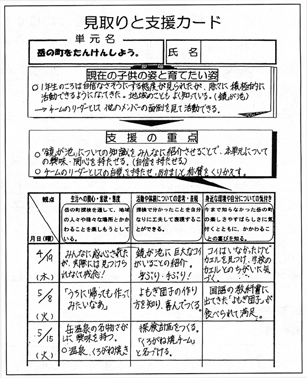 見取りと支援カード
単元名
岳の町をたんけんしよう。
氏名
現在の子供の姿と育てたい姿
○1年生のころは自信なさそうにする態度が見られたが、徐々に積極的に
活動できるようになってきた。地域のことをよく知っている。(鏡が池)
→チームのリーダーとして他のメンバーの面倒を見て活動できる。
支援の重点
○鏡が池についての知識をみんなに紹介させることで、本単元について
の興味・関心を持たせる。(自信を持たせる)
○チームのリーダーとしての自覚を持たせ、
観点
月日(曜)
生活への関心・意欲・態度
活動や体験についての思考・表現
身近な環境や自分についての気付き
岳の町探検を通して、地域
の人々や様々な場所とかか
わることを楽しもうとして
いる。
探検で分かったことを自分
なりに工夫して表現するこ
とができる。
今まで知らなかった岳の町
の楽しさやすばらしさに気
付くとともに、かかわるこ
との喜びを知る。
4/19
(木)
みんなに感心されたが、
実際には見つけら
れなくて残念!
鏡が池に巨大なコイ
がいることの紹介。
コイはいなかったけど
カエルを見つけ、学校の
カエルとのちがいに気
づく。
5/8
(火)
「うちに帰っても作って
みたいなあ」
よもぎ団子の作り
方を知り、喜んでつくる。
国語の教科書に
出てきた「よもぎ団子」が
食べられて満足。
5/15
(火)
岳温泉の名物さがし
に興味を持つ。
○温泉、くろがね焼き
探検計画をつくる。
「くろがね焼チーム」
と名づける。